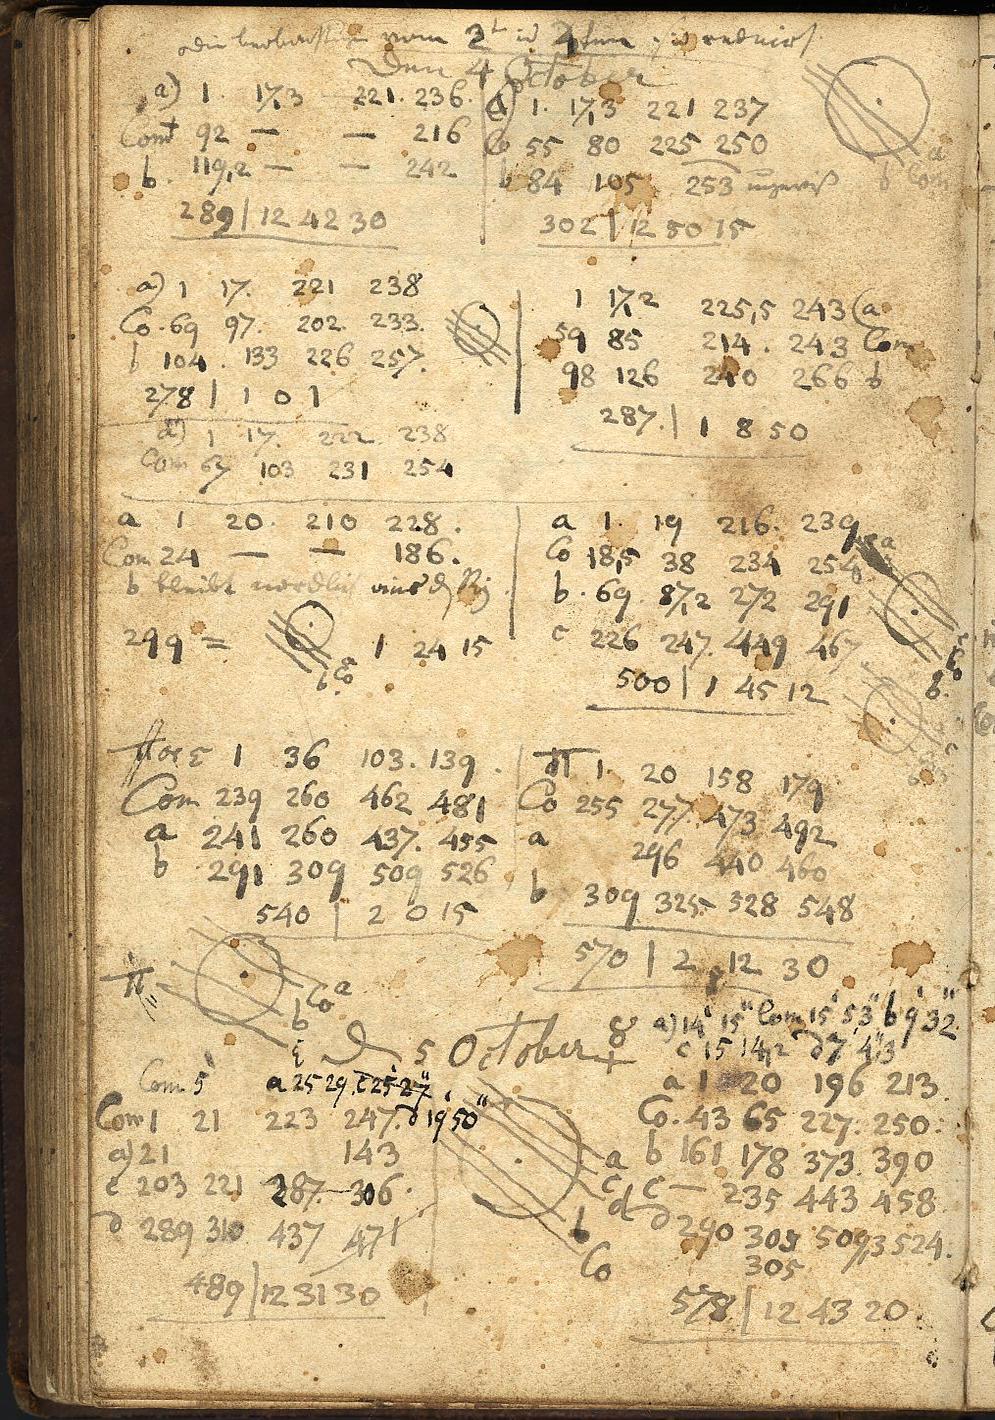 vom 2t 4ten
Den 4 October
a) 1. 17,3 221. 236.
Comt 92 — — 216
b. 119,2 — — 242
289 | 12 42 30
a) 1. 17,3 221 237
Co 55 80 225 250
b 84 105 253 ungewiß
302 | 12 50 15
a
b Com
a) 1 17. 221 238
Co. 69 97. 202. 233.
b 104. 133 226 257.
278 | 1 0 1
a) 1 17. 222. 238
Com 67 103 231 254
1 17,2 225,5 243 (a
59 85 214. 243 Com
98 126 240 266 b
287. | 1 8 50
a 1 20. 210 228.
Com 24 — — 186.
b bleibt nordlich
299 = 1 24 15
b Co
a 1. 19 216. 239
Co 18,5 38 234 254
b. 69. 87,2 272 291
c 226 247. 449 467
500 | 1 45 12
a
c
Co
b.
1 36 103. 139.
Com 239 260 462 481
a 241 260 437. 455
b 291 309 509 526
540 | 2 0 15
π 1. 20 158 179
Co 255 277. 473 492
a 296 440 460
b 309 325. 528 548
570 | 2 12 30
π
a
Co
b
D 5 October ☿
a) 14' 15" Com 15' 53" b 9' 32"
c 15 14,2 d 7' 43
Com 5' a 25 29, c 25' 27".
d 19 50"
Com 1 21 223 247.
a) 21 143
c 203 221 287. 306.
d 289 310 437 471
489 | 12 31 30
a
c
d
b
Co
a 1 20 196 213
Co. 43 65 227. 250.
b 161 178 373. 390
c — 235 443 458
d 290 309 509,3 524.
305
578 | 12 43 20.